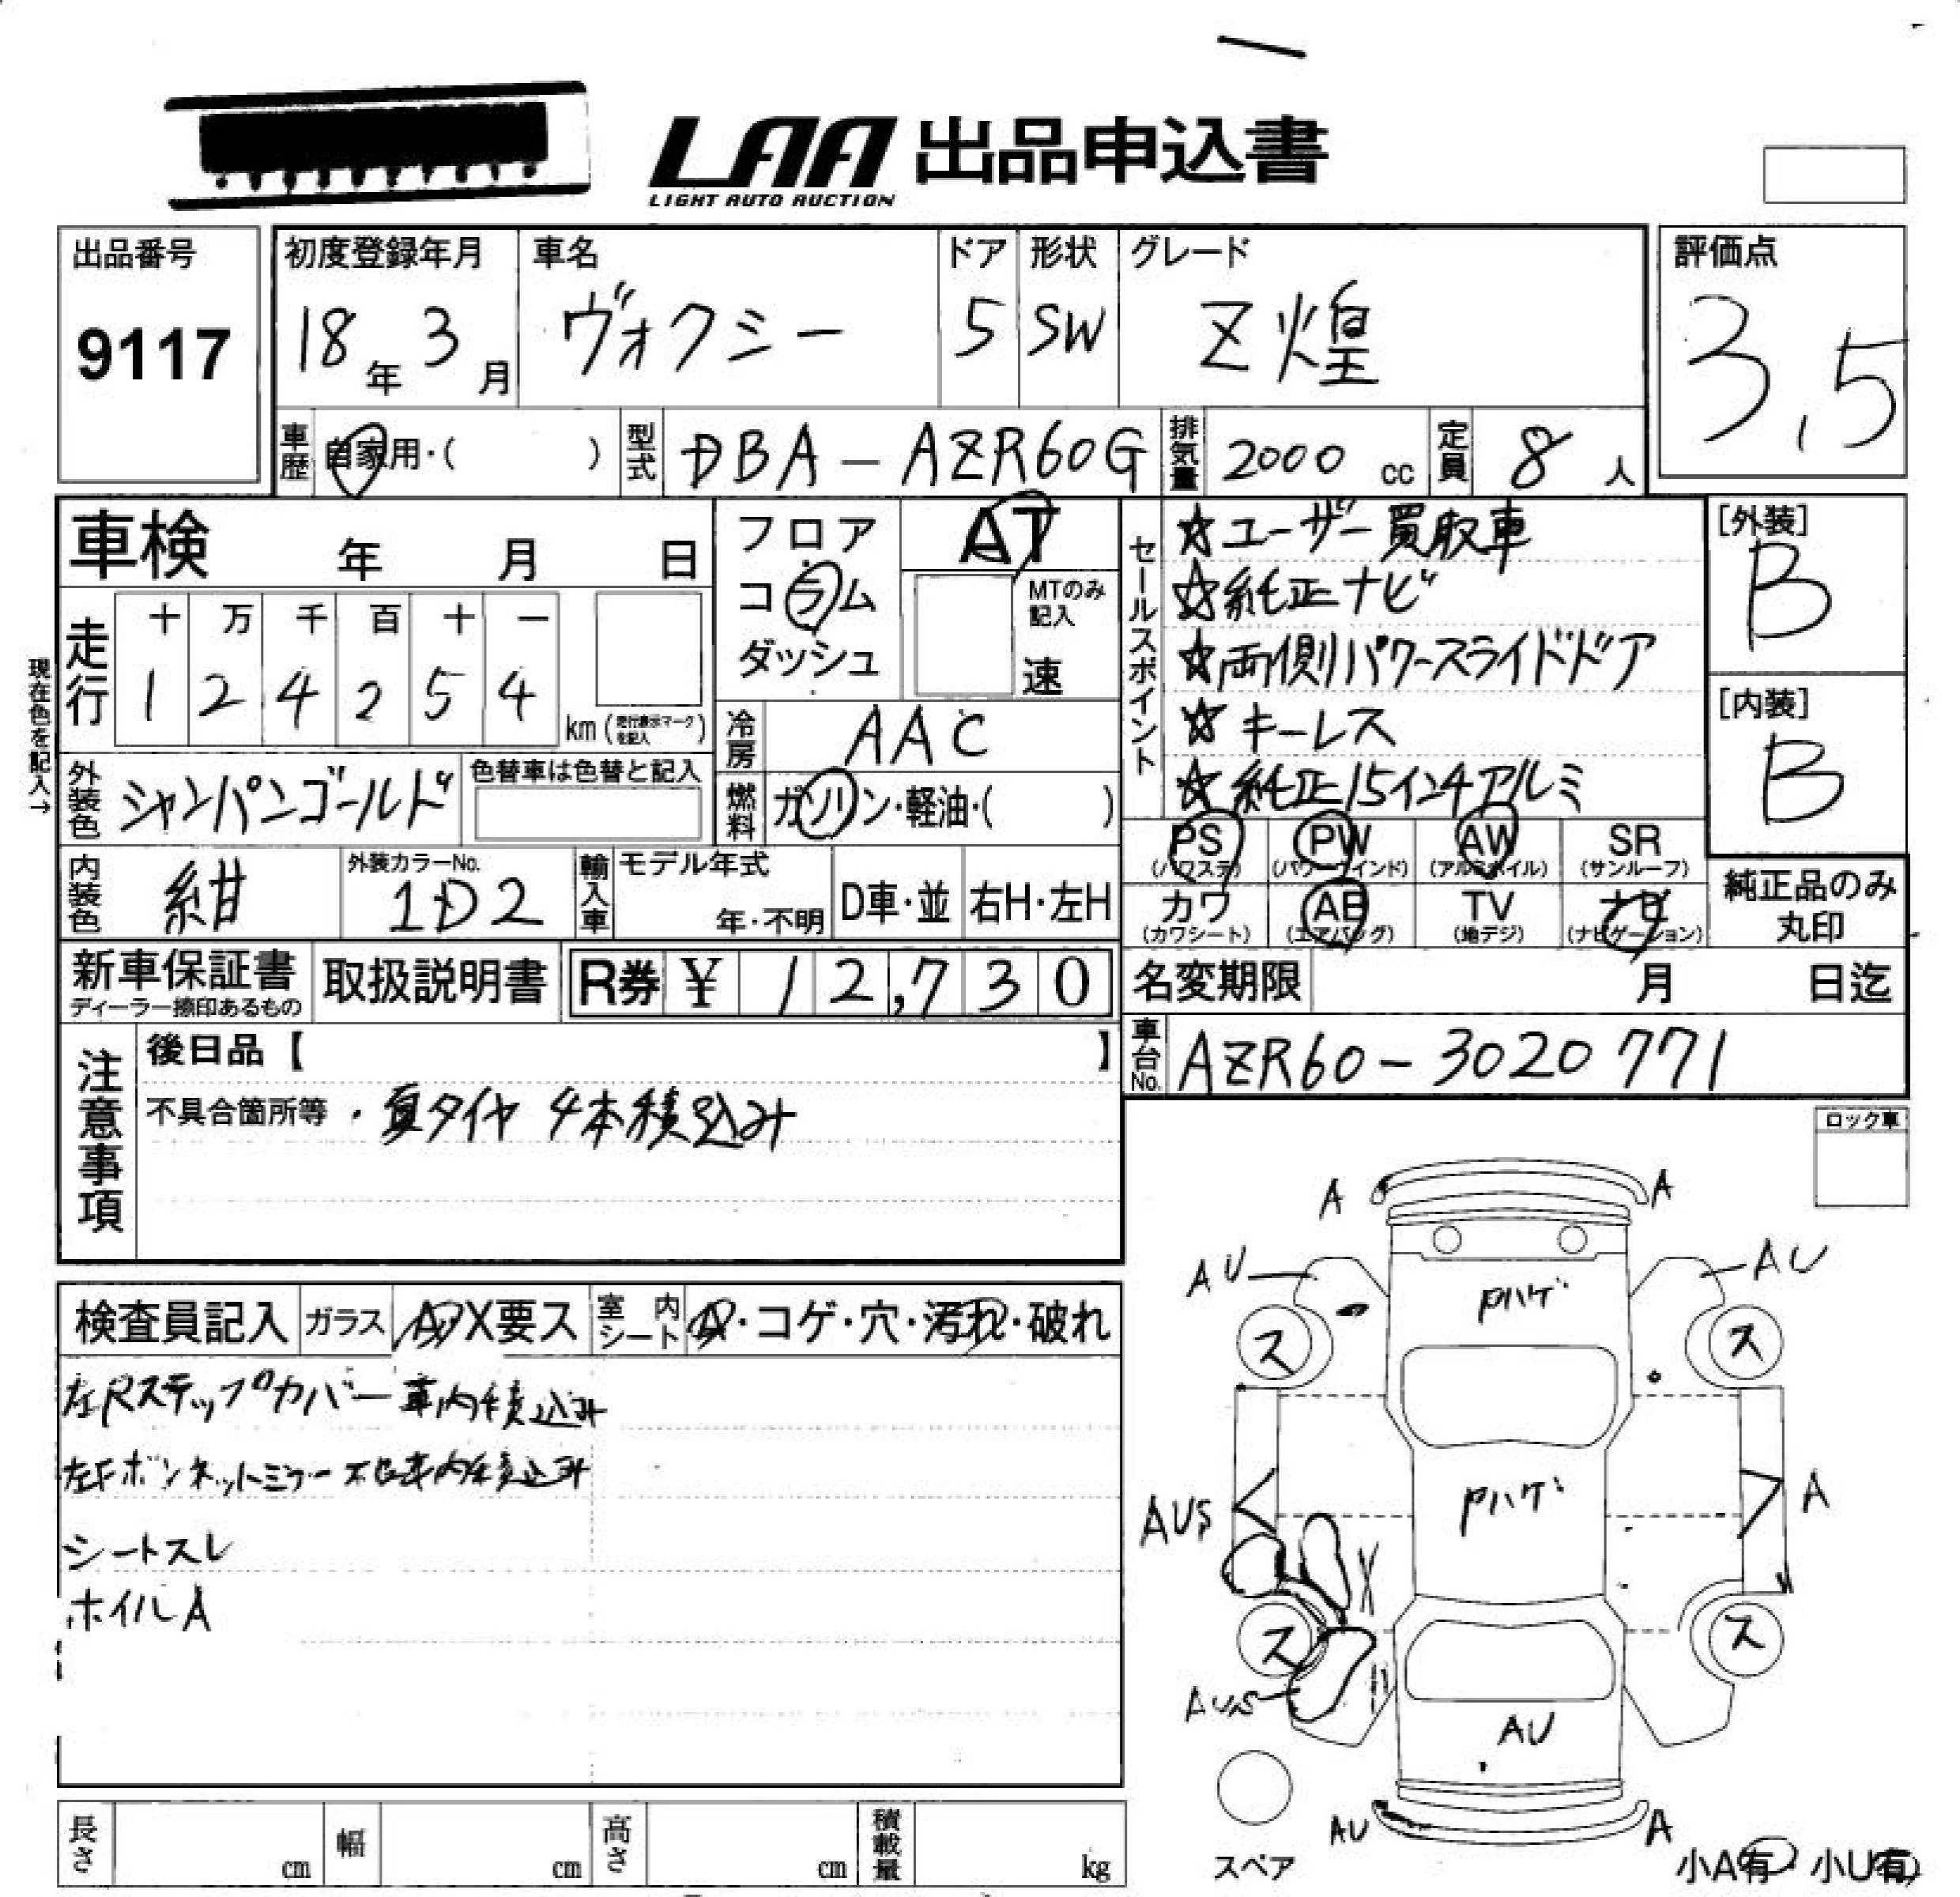 LAA 出品申込書
LIGHT AUTO AUCTION
出品番号
9117
初度登録年月
18年 3月
車名
ヴォクシー
ドア
5
形状
SW
グレード
Z煌
評価点
3.5
車歴 自家用・( )
型式 DBA-AZR60G
排気量 2000 cc
定員 8 人
車検 年 月 日
フロア
コラム
ダッシュ
AT
MTのみ記入
速
セールスポイント
☆ユーザー買取車
☆純正ナビ
☆両側パワースライドドア
☆キーレス
☆純正15インチアルミ
[外装]
B
[内装]
B
現在色を記入→
走行 十 万 千 百 十 一
1 2 4 2 5 4
km (走行表示マークを記入)
冷房 AAC
燃料 ガソリン・軽油・( )
外装色 シャンパンゴールド
色替車は色替と記入
内装色 紺
外装カラーNo.
1D2
輸入車 モデル年式
年・不明
D車・並 右H・左H
PS (パワステ)
PW (パワーウインド)
AW (アルミホイル)
SR (サンルーフ)
カワ (カワシート)
AB (エアバッグ)
TV (地デジ)
ナビ (ナビゲーション)
純正品のみ
丸印
新車保証書
ディーラー捺印あるもの
取扱説明書
R券 ¥ 12,730
名変期限 月 日迄
車台No. AZR60-3020771
注意事項
後日品【 】
不具合箇所等 ・夏タイヤ 4本積込み
ロック車
検査員記入 ガラス A・X要ス 室内シート A・コゲ・穴・汚れ・破れ
左Rステップカバー車内積込み
左Fボンネットミラー 車内積込み
シートスレ
ホイルA
A A
AU AU
Pハゲ
ス ス
Pハゲ
AUS A
X
ス ス
AUS
AU
AU A
スペア
小A有 小U有
長さ cm 幅 cm 高さ cm 積載量 kg